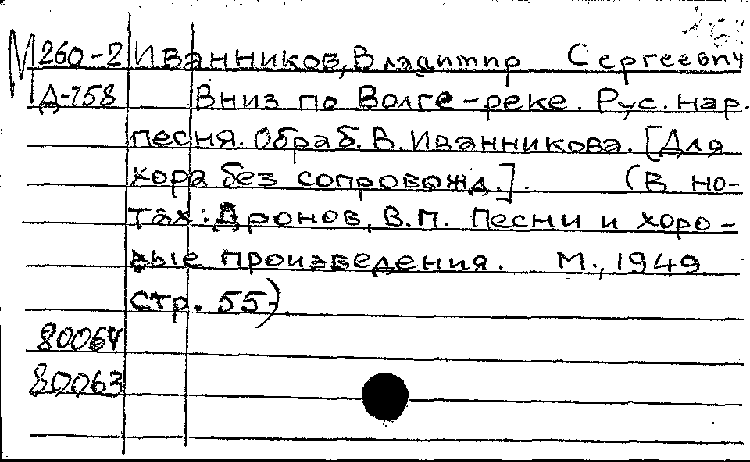 М 260-2 Иванников, Владимир Сергеевич
Д-758 Вниз по Волге-реке. Рус. нар.
песня. Обраб. В. Иванникова. [Для
хора без сопровожд.]. (В но-
тах: Дронов, В.П. Песни и хоро-
вые произведения. М., 1949
стр. 55)
80064
80063